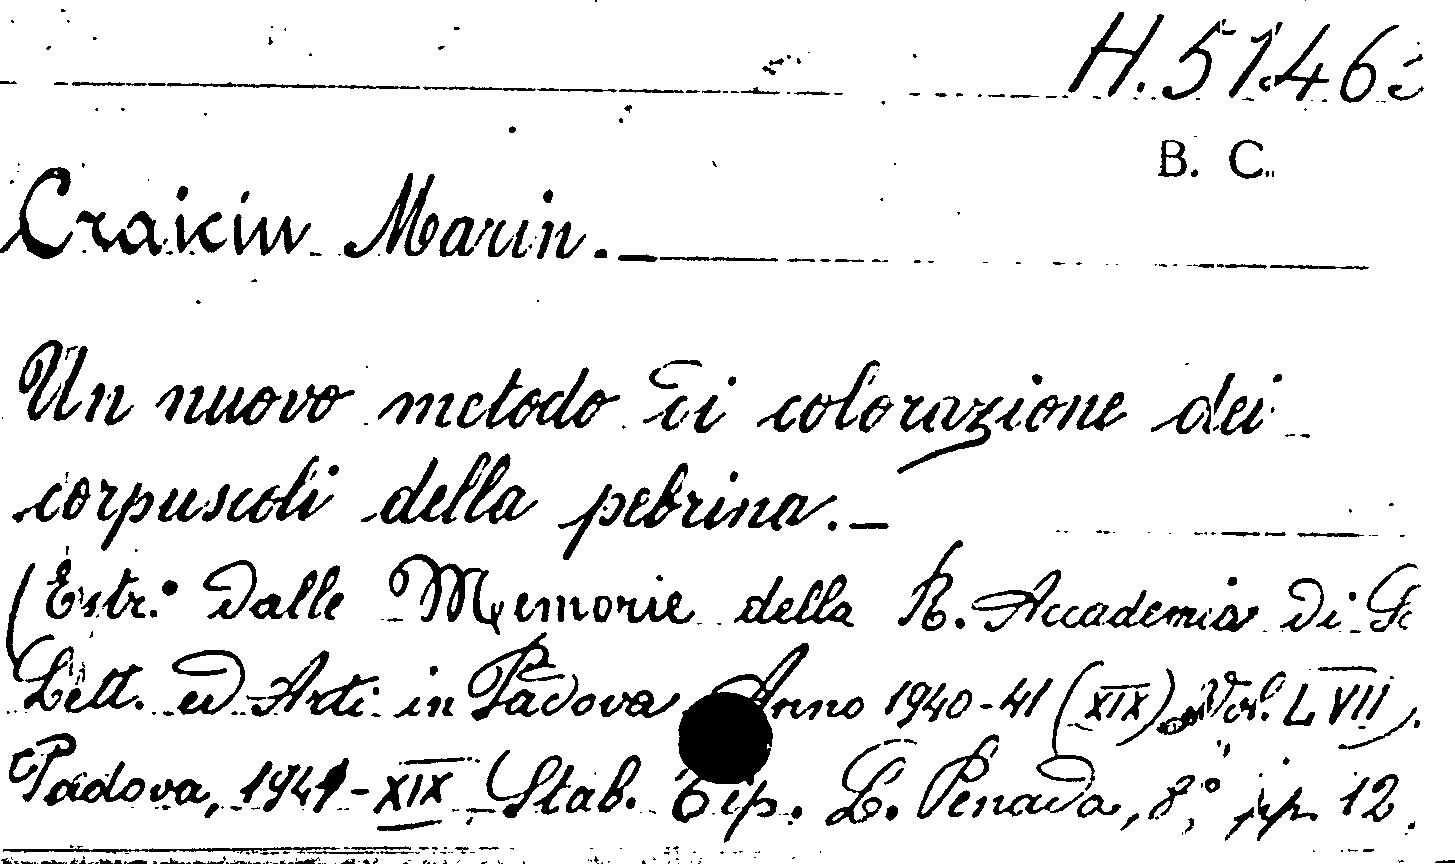 H. 5146
B. C.
Craiciu Marin.
Un nuovo metodo di colorazione dei
corpuscoli della pebrina.
(Estr.º dalle Memorie della R. Accademia di
Lett. ed Arti in Padova Anno 1940-41 (XIX), Vol. LVII).
Padova, 1941-XIX Stab. Tip. L. Penada, 8º, pp. 12.